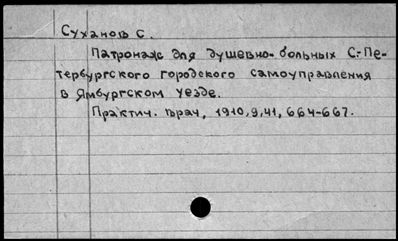 Суханов С.
Патронаж для душевно-больных С.-Пе-
тербургского городского самоуправления
в Ямбургском уезде.
Практич. врач, 1910,9,41, 664-667.